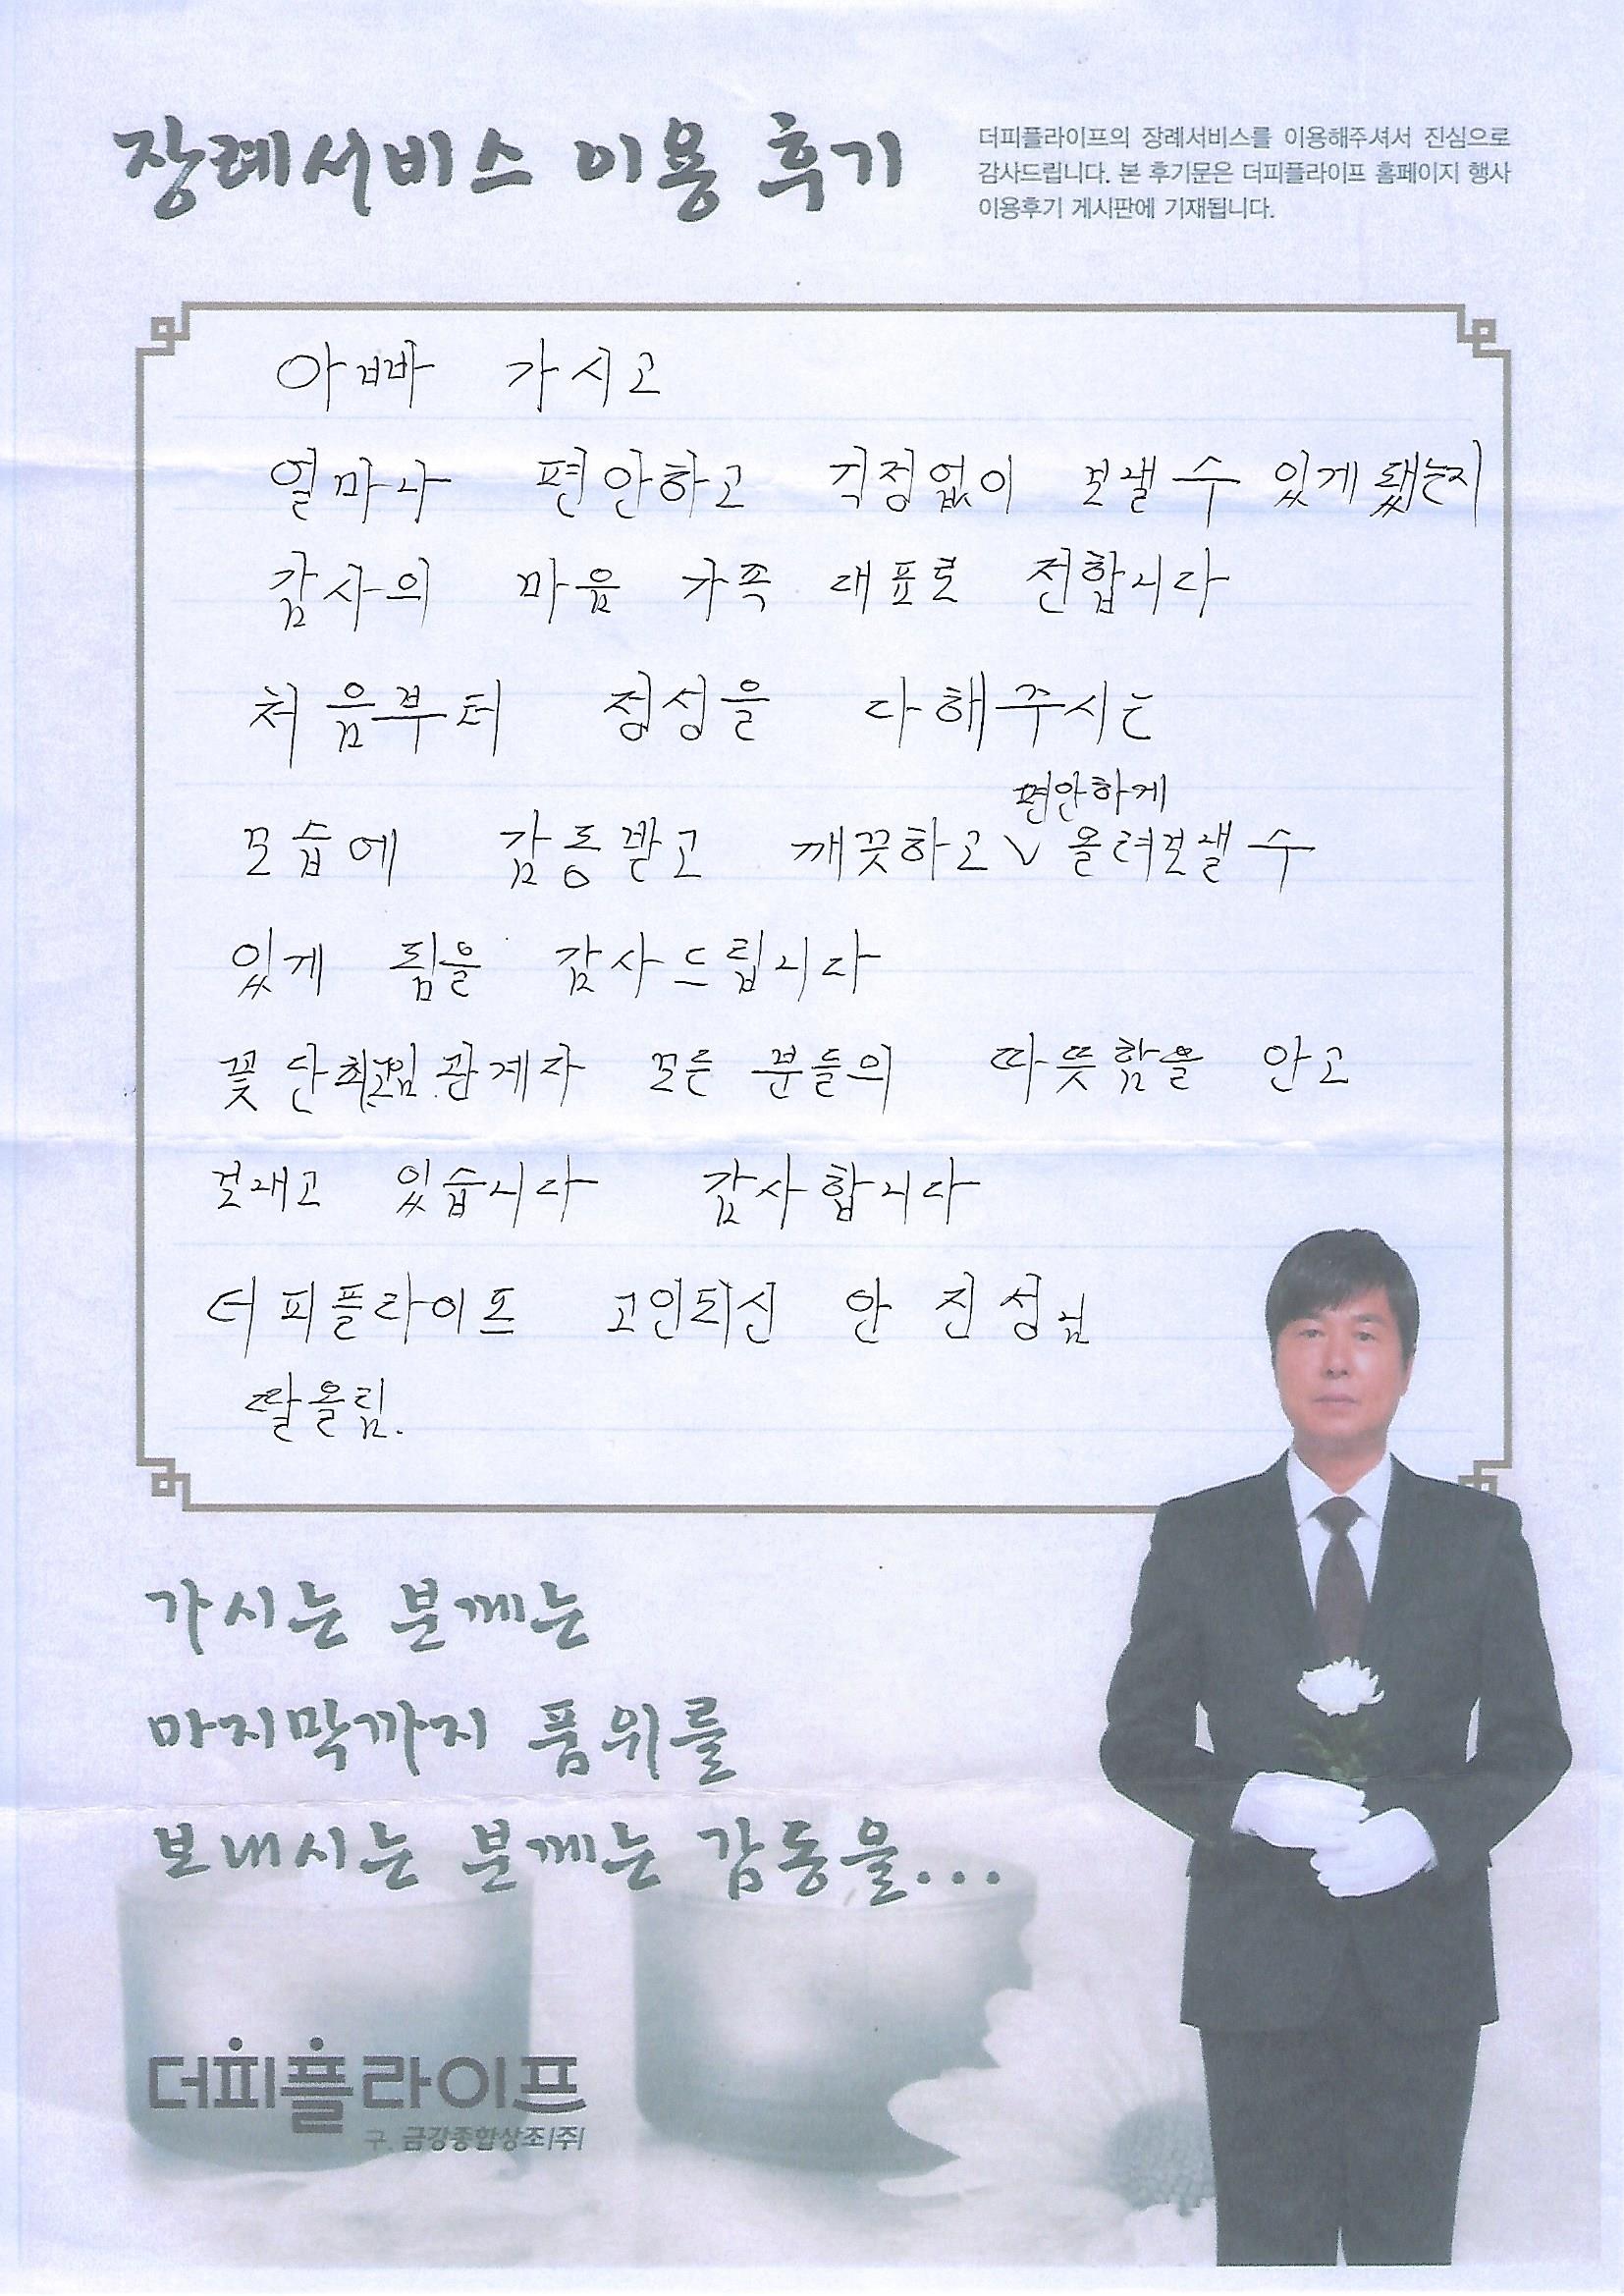 장례서비스 이용 후기
더피플라이프의 장례서비스를 이용해주셔서 진심으로
감사드립니다. 본 후기문은 더피플라이프 홈페이지 행사
이용후기 게시판에 기재됩니다.
아빠 가시고
얼마나 편안하고 걱정없이 보낼수 있게 됐는지
감사의 마음 가족 대표로 전합니다
처음부터 정성을 다해주시는
편안하게
모습에 감동받고 깨끗하고 ∨ 올려보낼수
있게 됨을 감사드립니다
꽃단 관계자 모든 분들의 따뜻함을 안고
보내고 있습니다 감사합니다
더피플라이프 고인되신 안진성님
딸올림.
가시는 분께는
마지막까지 품위를
보내시는 분께는 감동을...
더피플라이프
구. 금강종합상조(주)